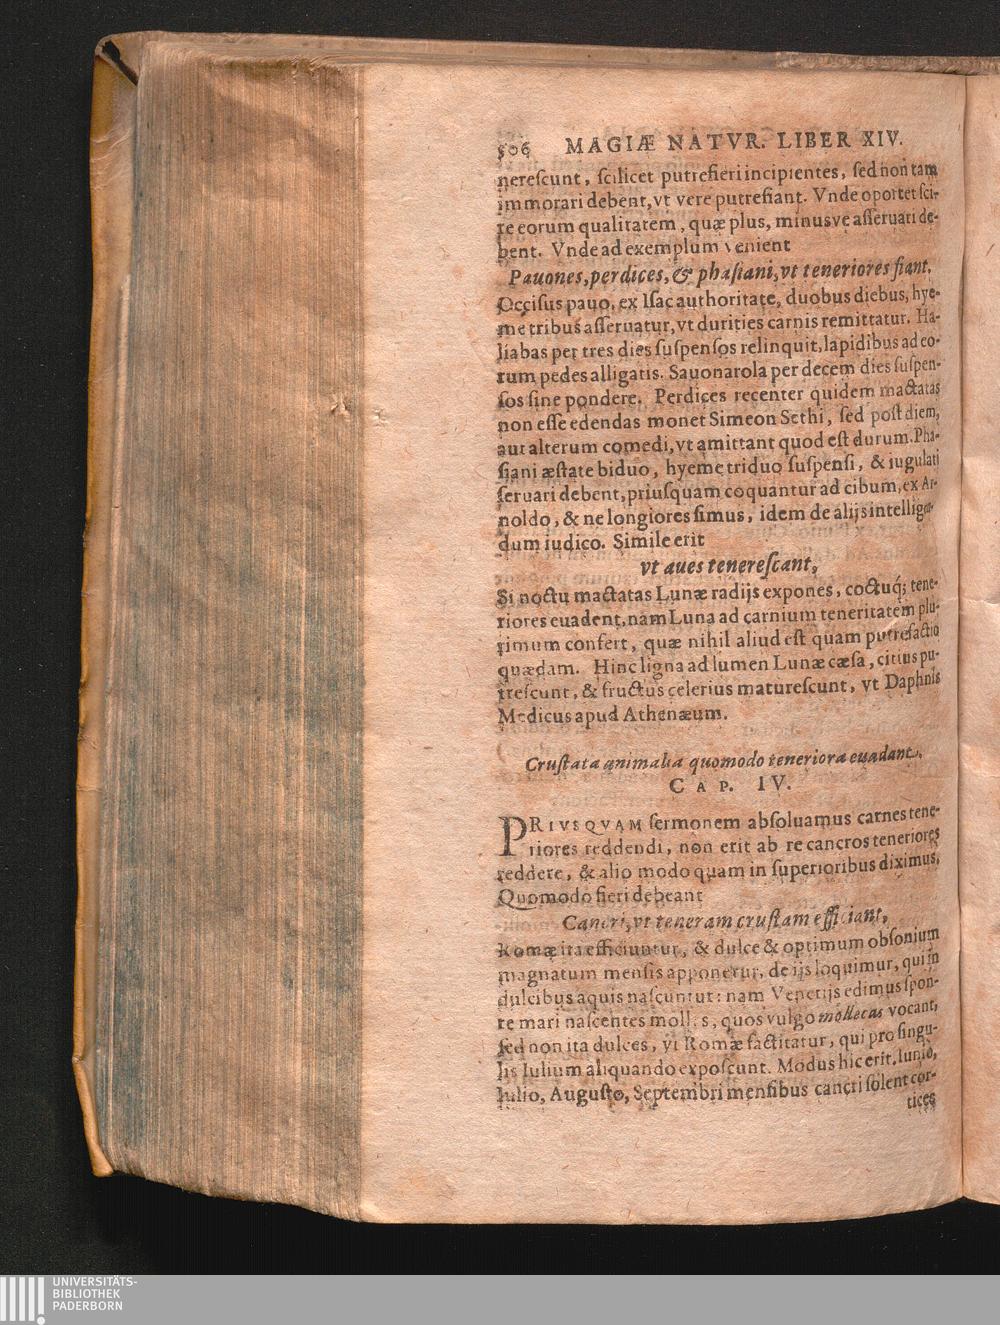 506 MAGIÆ NATVR. LIBER XIV.
nerescunt, scilicet putrefieri incipientes, sed non tam
immorari debent, vt vere putrefiant. Vnde oportet sci-
re eorum qualitatem, quæ plus, minusve asseruari de-
bent. Vnde ad exemplum venient
Pauones, perdices, & phasiani, vt teneriores fiant.
Occisus pauo, ex Isac authoritate, duobus diebus, hye-
me tribus asseruatur, vt durities carnis remittatur. Ha-
liabas per tres dies suspensos relinquit, lapidibus ad eo-
rum pedes alligatis. Sauonarola per decem dies suspen-
sos sine pondere. Perdices recenter quidem mactatas
non esse edendas monet Simeon Sethi, sed post diem,
aut alterum comedi, vt amittant quod est durum. Pha-
siani æstate biduo, hyeme triduo suspensi, & iugulati
seruari debent, priusquam coquantur ad cibum, ex Ar-
noldo, & ne longiores simus, idem de alijs intelligen-
dum iudico. Simile erit
vt aues tenerescant,
Si noctu mactatas Lunæ radijs expones, coctuq́; tene-
riores euadent, nam Luna ad carnium teneritatem plu-
rimum confert, quæ nihil aliud est quam putrefactio
quædam. Hinc ligna ad lumen Lunæ cæsa, citius pu-
trescunt, & fructus celerius maturescunt, vt Daphnis
Medicus apud Athenæum.
Crustata animalia quomodo teneriora euadant.
CAP. IV.
PRIVSQVAM sermonem absoluamus carnes tene-
riores reddendi, non erit ab re cancros teneriores
reddere, & alio modo quam in superioribus diximus.
Quomodo fieri debeant
Cancri, vt teneram crustam efficiant,
Romæ ita efficiuntur, & dulce & optimum obsonium
magnatum mensis apponetur, de ijs loquimur, qui in
dulcibus aquis nascuntur: nam Venetijs edimus spon-
te mari nascentes molles, quos vulgo mollecas vocant,
sed non ita dulces, vt Romæ factitatur, qui pro singu-
lis Iulium aliquando exposcunt. Modus hic erit. Iunio,
Iulio, Augusto, Septembri mensibus cancri solent cor-
tices
UNIVERSITÄTS-
BIBLIOTHEK
PADERBORN